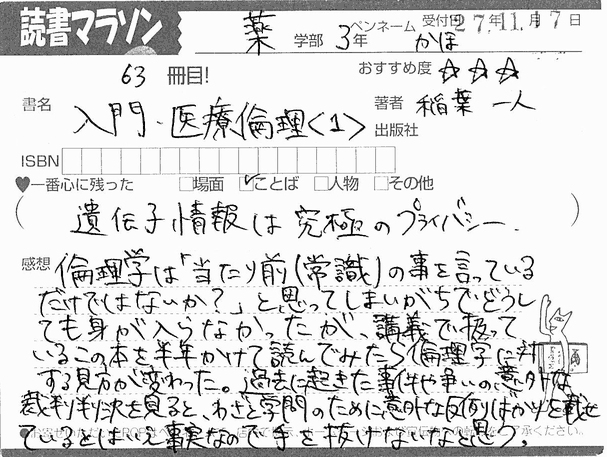 読書マラソン 薬 学部 3年 ペンネーム かほ 受付日 27年 11月 17日
63 冊目! おすすめ度 ☆☆☆
書名 入門・医療倫理〈1〉 著者 稲葉 一人
出版社
ISBN
♥一番心に残った □場面 ☑ことば □人物 □その他
(遺伝子情報は究極のプライバシー.)
感想 倫理学は「当たり前(常識)の事を言っている
だけではないか?」と思ってしまいがちでどうし
ても身が入らなかったが、講義で扱って
いるこの本を半年かけて読んでみたら倫理学に対
する見方が変わった。過去に起きた事件や争いの意外な
裁判判決を見ると、わざと学問のために意外な反例ばかりを載せ
ているとはいえ事実なので手を抜けないなと思う。